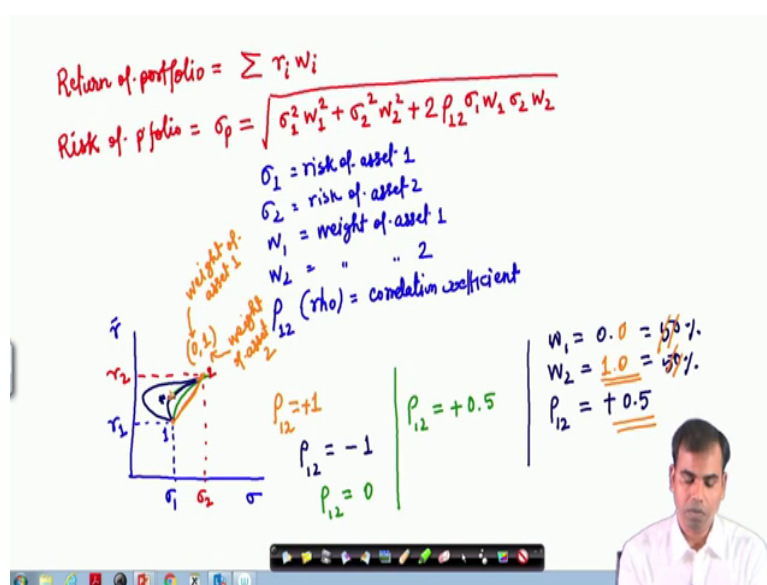 Return of portfolio = Σ rᵢ wᵢ
Risk of p'folio = σₚ = √(σ₁² w₁² + σ₂² w₂² + 2 ρ₁₂ σ₁ w₁ σ₂ w₂)
σ₁ = risk of asset 1
σ₂ = risk of asset 2
w₁ = weight of asset 1
w₂ = " " 2
ρ₁₂ (rho) = correlation coefficient
weight of asset 1
(0,1)
weight of asset 2
r̄
r₂
2
r₁
1
σ₁
σ₂
σ
ρ₁₂ = +1
ρ₁₂ = -1
ρ₁₂ = 0
ρ₁₂ = +0.5
w₁ = 0.0 = 50%
w₂ = 1.0 = 50%
ρ₁₂ = +0.5